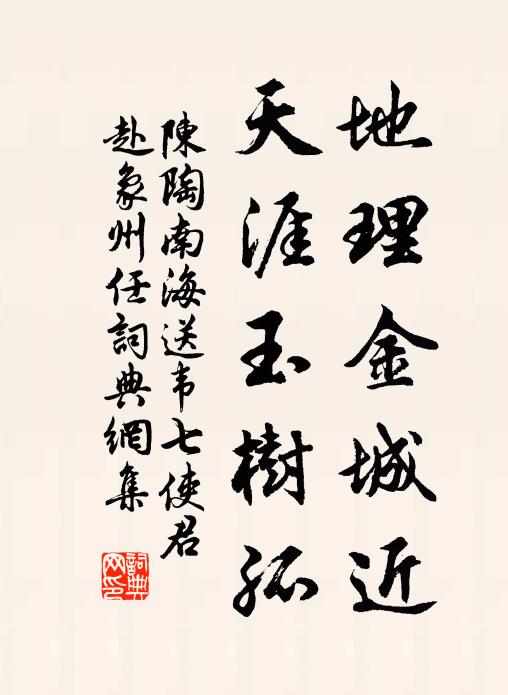 地理金城近
天涯玉樹孤
陳陶南海送韦七使君
赴象州任詞典網集
詞典
网印